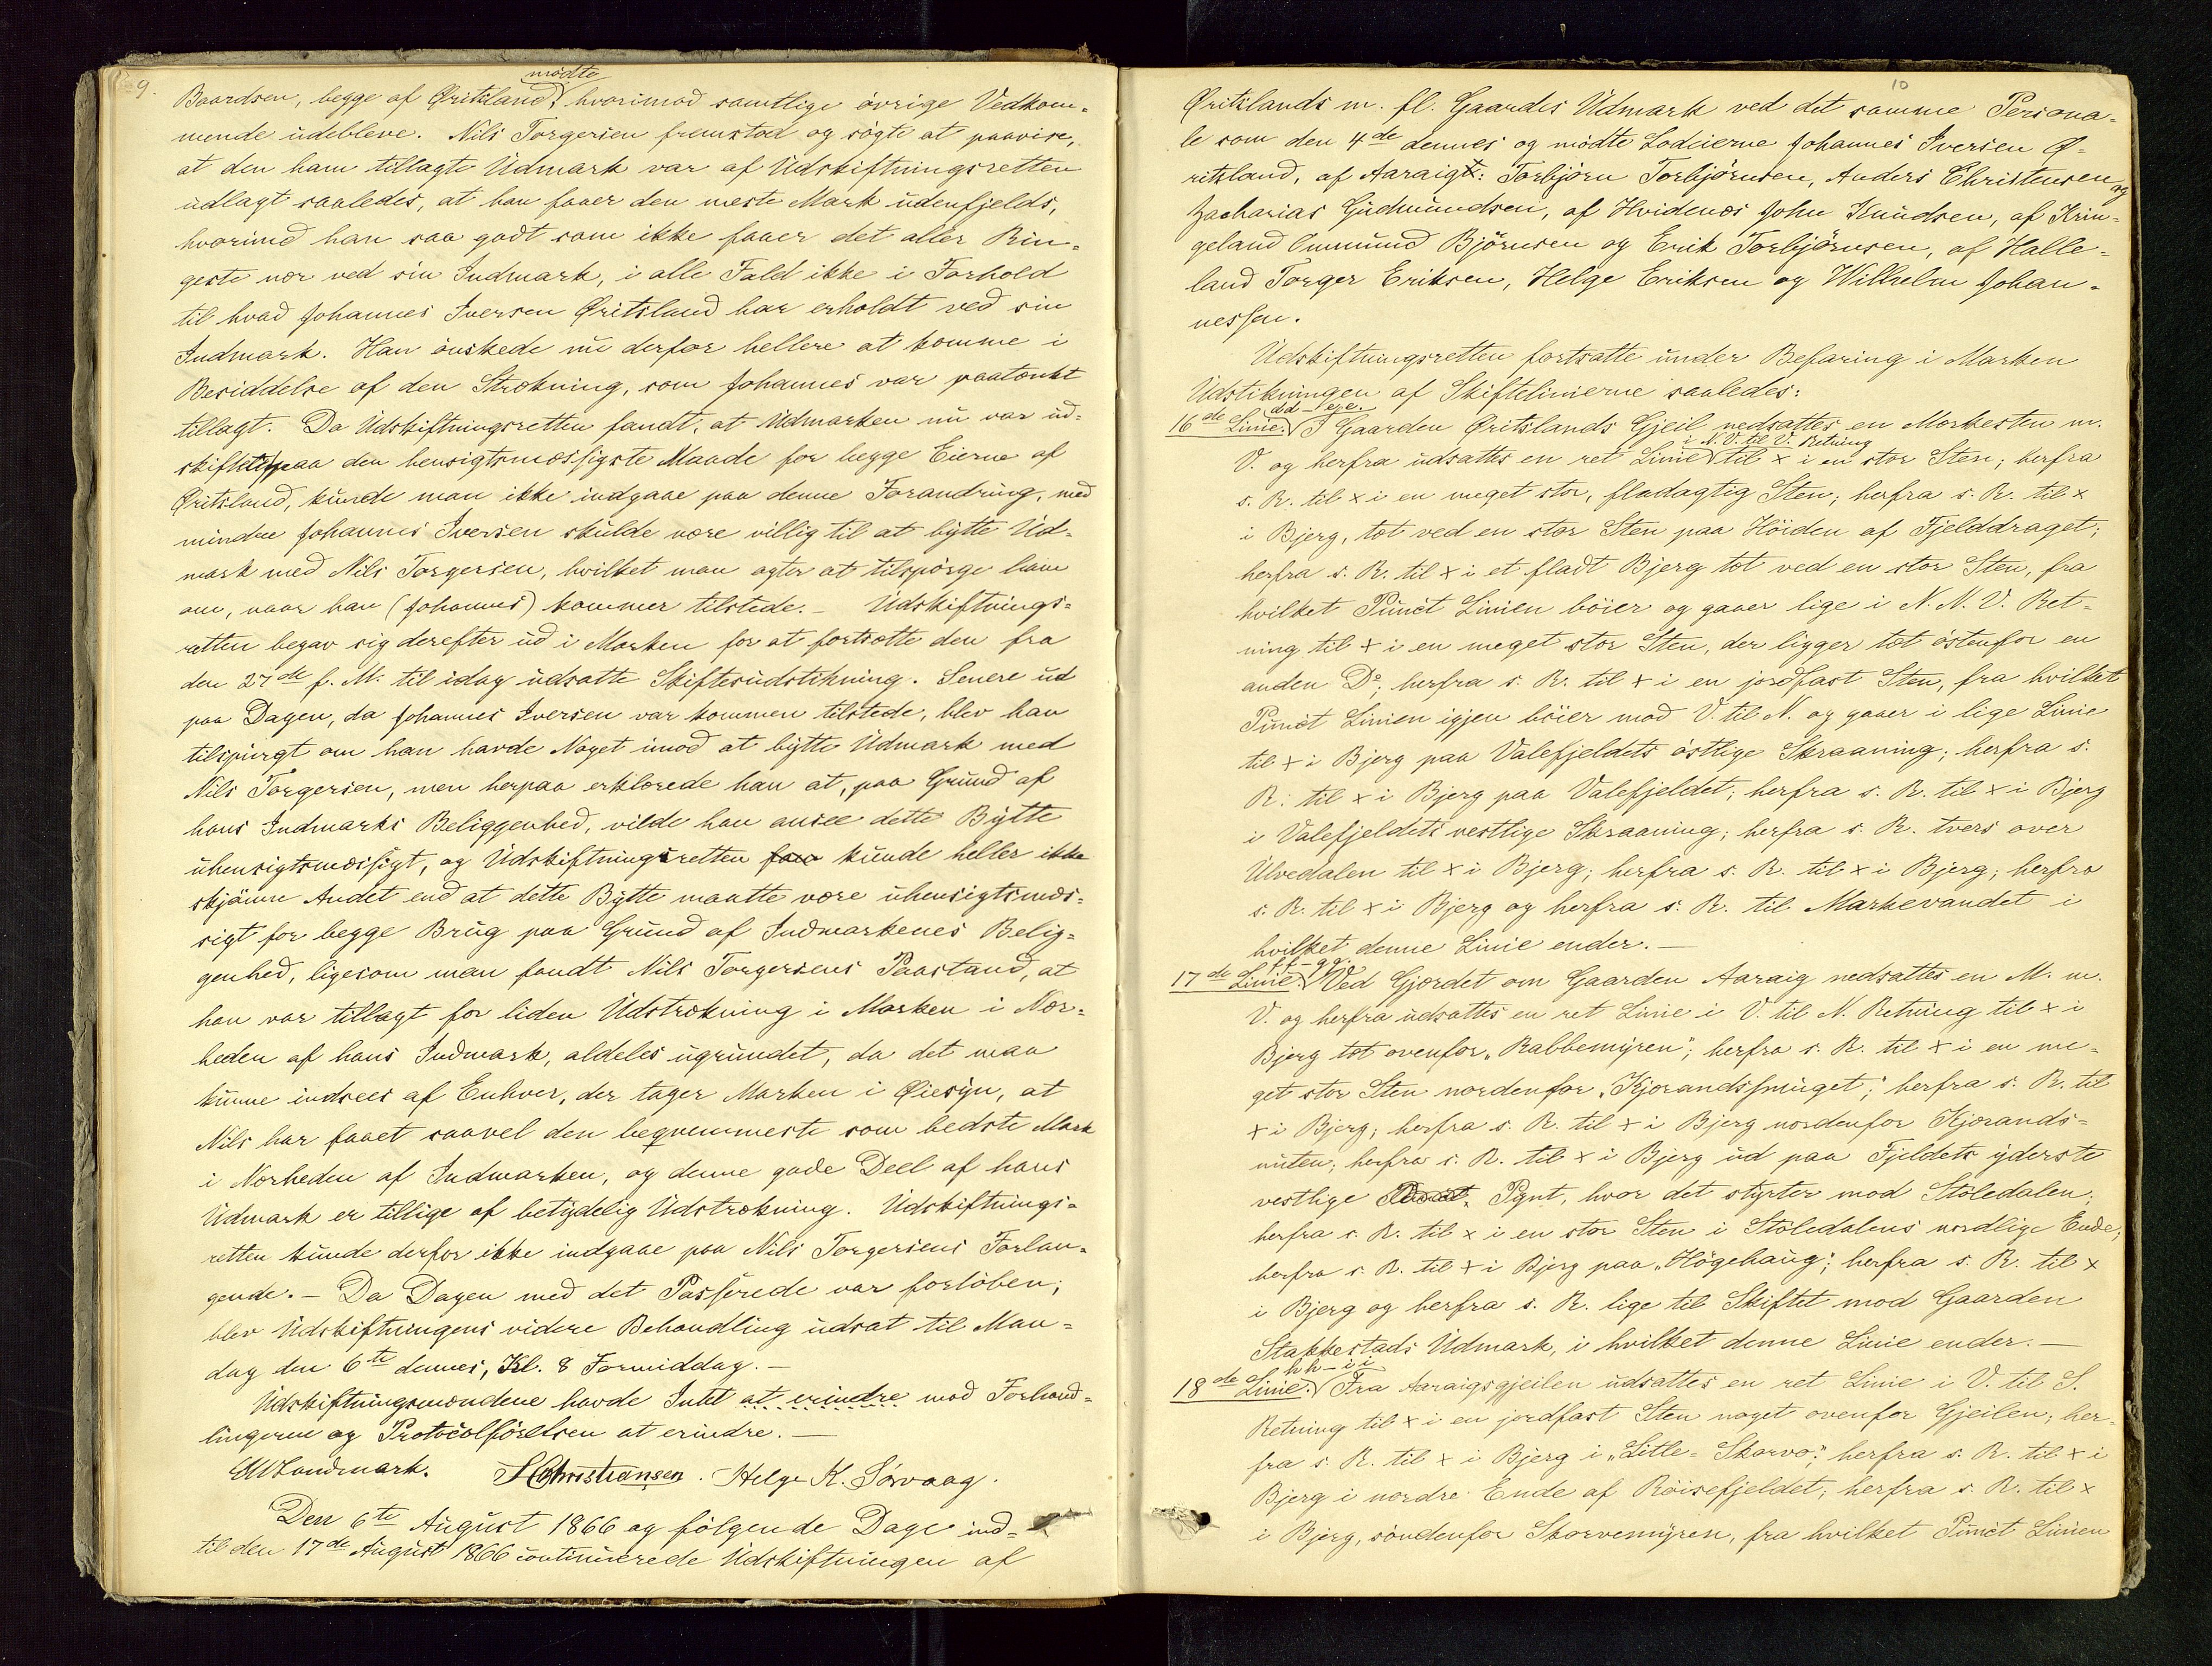 9.
mödte
Baardsen, begge af Øritsland, hvorimod samtlige övrige Vedkom-
mende udebleve. Nils Torgersen fremstod og sögte at paavise,
at den ham tillagte Udmark var af Udskiftningsretten
udlagt saaledes, at han faaer den meste Mark udenfjelds,
hvorimod han saa godt som ikke faaer det aller Rin-
geste nær ved sin Indmark, i alle Fald ikke i Forhold
til hvad Johannes Iversen Øritsland har erholdt ved sin
Indmark. Han önskede nu derfor hellere at komme i
Besiddelse af den Strækning, som Johannes var paatænkt
tillagt. Da Udskiftningsretten fandt, at Udmarken nu var ud-
skiftet paa den hensigtsmæssigste Maade for begge Eierne af
Øritsland, kunde man ikke indgaae paa denne Forandring, med
mindre Johannes Iversen skulde være villig til at bytte Ud-
mark med Nils Torgersen, hvilket man agter at tilspörge ham
om, naar han (Johannes) kommer tilstede. – Udskiftnings-
retten begav sig derefter ud i Marken for at fortsætte den fra
den 27de f. M. til idag udsatte Skiftesudstikning. Senere ud
paa Dagen, da Johannes Iversen var kommen tilstede, blev han
tilspurgt om han havde Noget imod at bytte Udmark med
Nils Torgersen, men herpaa erklærede han at, paa Grund af
hans Indmarks Beliggenhed, vilde han ansee dette Bytte
uhensigtsmæssigt, og Udskiftningsretten kunde heller ikke
skjönne Andet end at dette Bytte maatte være uhensigtsmæs-
sigt for begge Brug paa Grund af Indmarkenes Belig-
genhed, ligesom man fandt Nils Torgersens Paastand, at
han var tillagt for liden Udstrækning i Marken i Nær-
heden af hans Indmark, aldeles ugrundet, da det maa
kunne indsees af Enhver, der tager Marken i Øiesyn, at
Nils har faaet saavel den beqvemmeste som bedste Mark
i Nærheden af Indmarken, og denne gode Deel af hans
Udmark er tillige af betydelig Udstrækning. Udskiftnings-
retten kunde derfor ikke indgaae paa Nils Torgersens Forlan-
gende. – Da Dagen med det Passerede var forlöben,
blev Udskiftningens videre Behandling udsat til Man-
dag den 6te dennes, Kl. 8 Formiddag. –
Udskiftningsmændene havde Intet at erindre mod Forhand-
lingerne og Protocolförelsen at erindre. –
Landmark. HChristiansen. Helge K. Sörvaag.
Den 6te August 1866 og fölgende Dage ind-
til den 17de August 1866 continuerede Udskiftningen af
10
Øritslands m. fl. Gaardes Udmark ved det samme Persona-
le som den 4de dennes og mödte Lodeierne Johannes Iversen Ø-
ritsland, af Aaraig: Torbjörn Torbjörnsen, Anders Christensen og
Zacharias Gudmundsen, af Hvidenæs John Knudsen, af Krin-
geland Ommund Björnsen og Erik Torbjörnsen, af Halle-
land Torger Eriksen, Helge Eriksen og Wilhelm Johan-
nessen.
Udskiftningsretten fortsatte under Befaring i Marken
Udstikningen af Skiftelinierne saaledes:
dd – ee.
16de Linie. I Gaarden Øritslands Gjeil nedsattes en Merkesten m.
i N. V. til V. Retning
V. og herfra udsattes en ret Linie til x i en stor Sten; herfra
s. R. til x i en meget stor, fladagtig Sten; herfra s. R. til x
i Bjerg, tæt ved en stor Sten paa Höiden af Fjelddraget;
herfra s. R. til x i et fladt Bjerg tæt ved en stor Sten, fra
hvilket Punct Linien böier og gaaer lige i N. N. V. Ret-
ning til x i en meget stor Sten, der ligger tæt östenfor en
anden Do; herfra s. R. til x i en jordfast Sten, fra hvilket
Punct Linien igjen böier mod V. til N. og gaaer i lige Linie
til x i Bjerg paa Valefjeldets östlige Skraaning; herfra s.
R. til x i Bjerg paa Valefjeldet; herfra s. R. til x i Bjerg
i Valefjeldets vestlige Skraaning; herfra s. R. tvers over
Ulvedalen til x i Bjerg; herfra s. R. til x i Bjerg; herfra
s. R. til x i Bjerg og herfra s. R. til Markevandet i
hvilket denne Linie ender. –
ff – gg.
17de Linie. Ved Gjærdet om Gaarden Aaraig nedsattes en M. m.
V. og herfra udsattes en ret Linie i V. til N. Retning til x i
Bjerg tæt ovenfor „Rabbemyren"; herfra s. R. til x i en me-
get stor Sten nordenfor „Kjorandssmuget"; herfra s. R. til
x i Bjerg; herfra s. R. til x i Bjerg nordenfor Kjorands-
nuten; herfra s. R. til x i Bjerg ud paa Fjeldets yderste
vestlige Pynt, hvor det styrter mod Stöledalen;
herfra s. R. til x i en stor Sten i Stöledalens nordlige Ende;
herfra s. R. til x i Bjerg paa „Högehaug"; herfra s. R. til x
i Bjerg og herfra s. R. lige til Skiftet mod Gaarden
Stakkestads Udmark, i hvilket denne Linie ender. –
hh – ii
18de Linie. Fra Aaraigsgjeilen udsattes en ret Linie i V. til S.
Retning til x i en jordfast Sten noget ovenfor Gjeilen; her-
fra s. R. til x i Bjerg i „Litle-Skorvo"; herfra s. R. til x i
Bjerg i nordre Ende af Röisefjeldet; herfra s. R. til x
i Bjerg, söndenfor Skorvemyren, fra hvilket Punct Linien